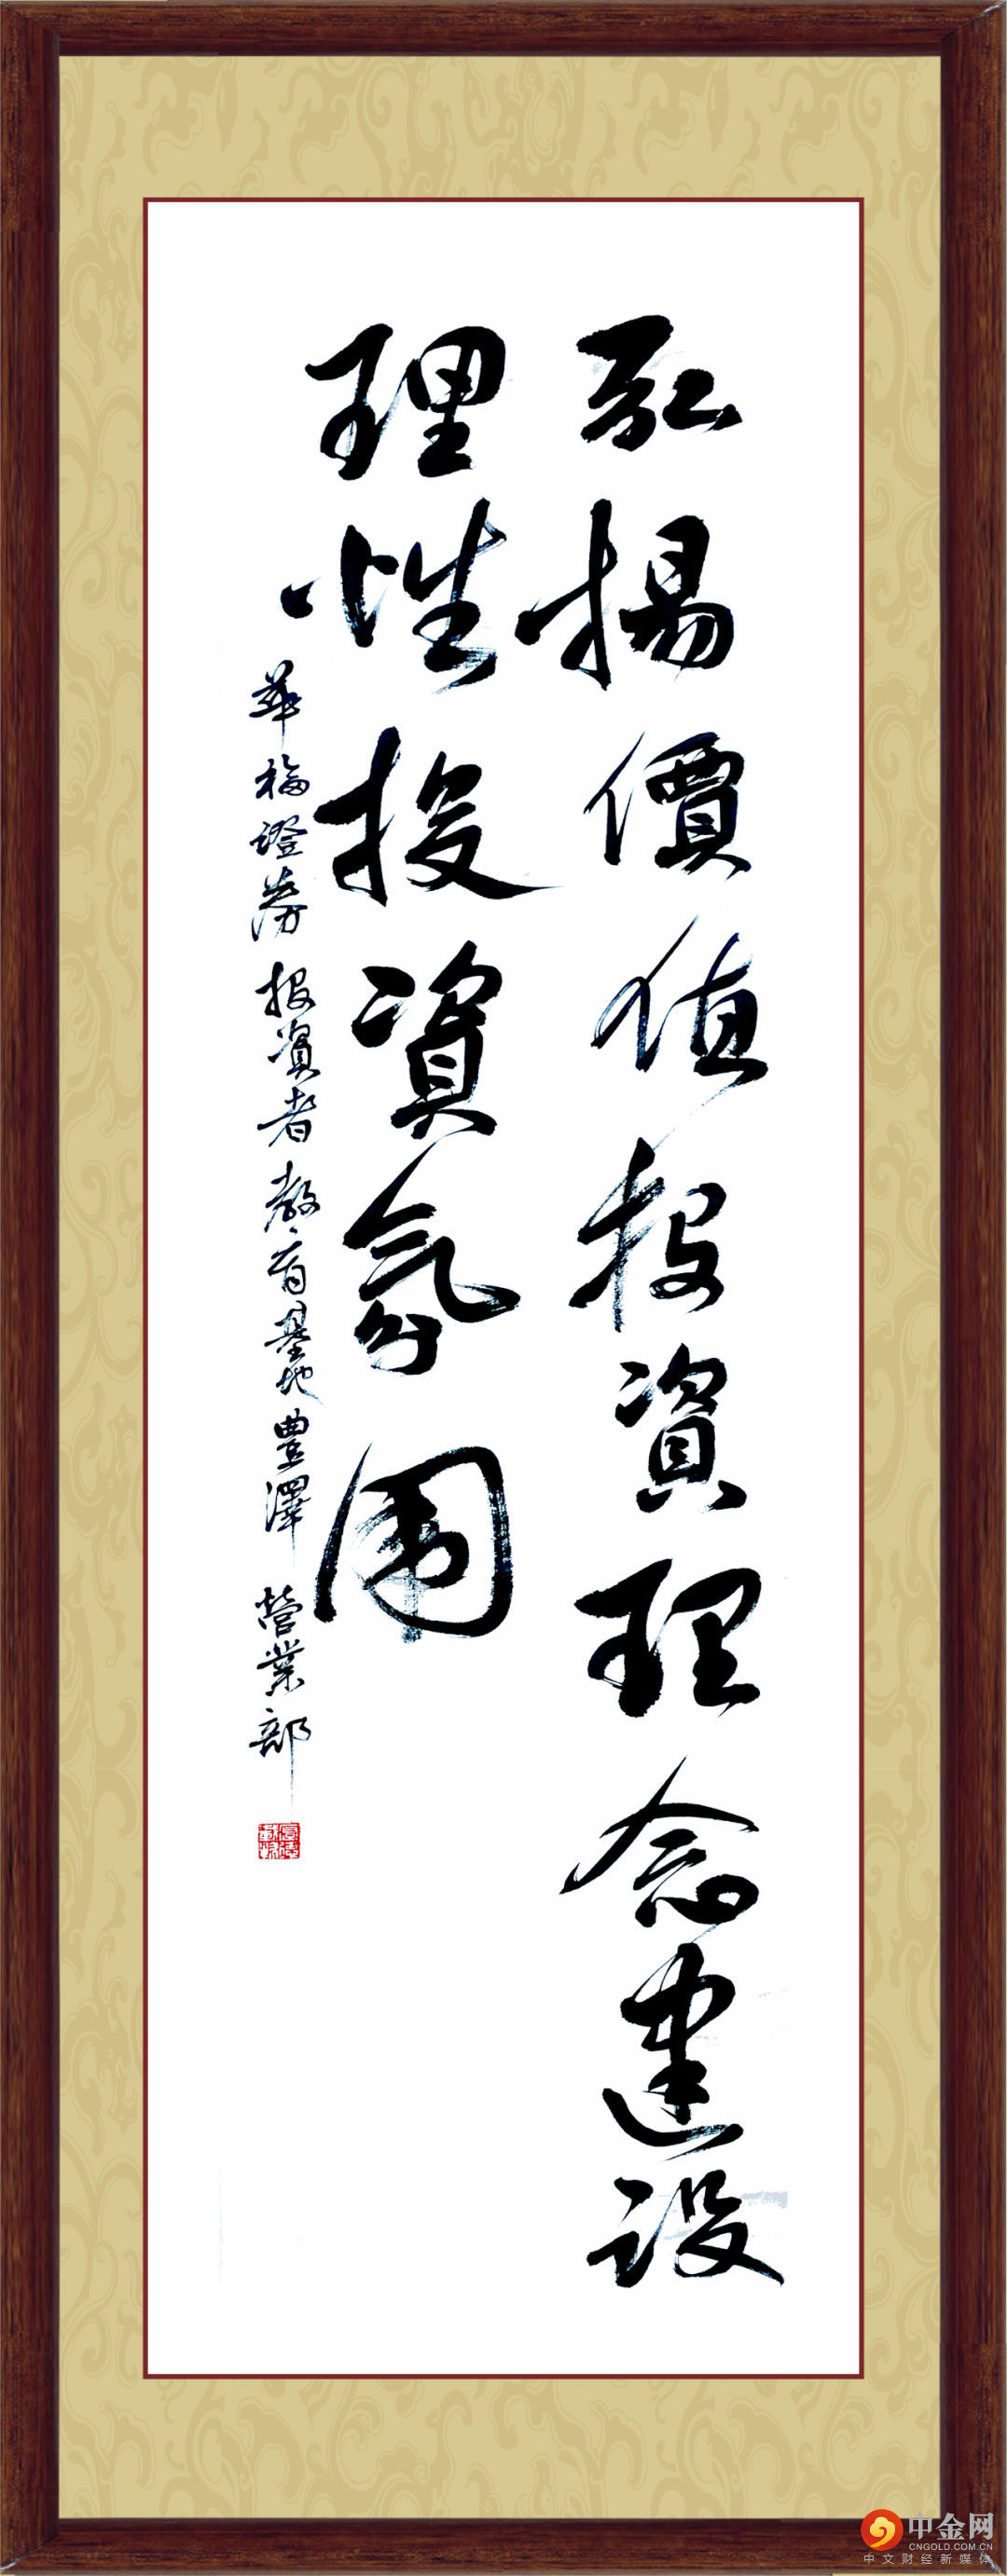 弘揚價值投資理念建设
理性投資氛围
華福證券投資者教育基地豐澤營業部
中金网
CNGOLD.COM.CN
中文财经新媒体